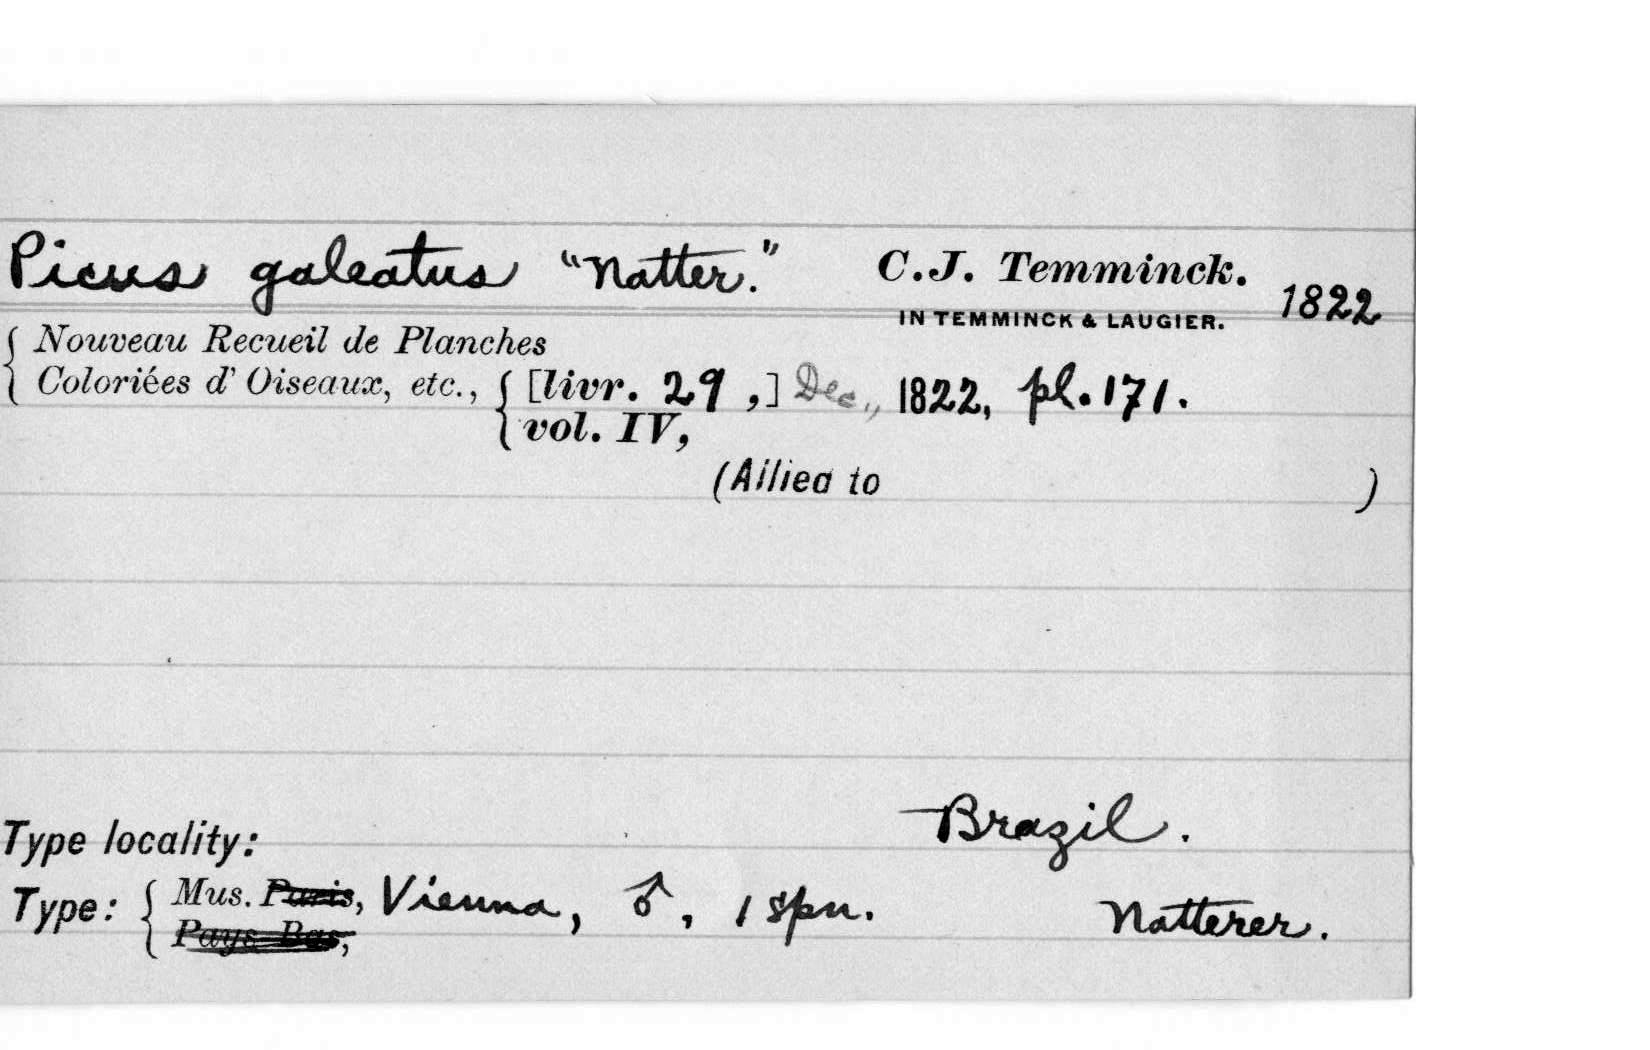 Picus galeatus "Natter." C.J. Temminck. 1822
IN TEMMINCK & LAUGIER.
Nouveau Recueil de Planches
Coloriées d' Oiseaux, etc., [livr. 29 ,] Dec., 1822, pl. 171.
vol. IV,
(Allied to )
Type locality: Brazil.
Type: Mus. Paris, Vienna, ♂, 1 spn. Natterer.
Pays Bas,